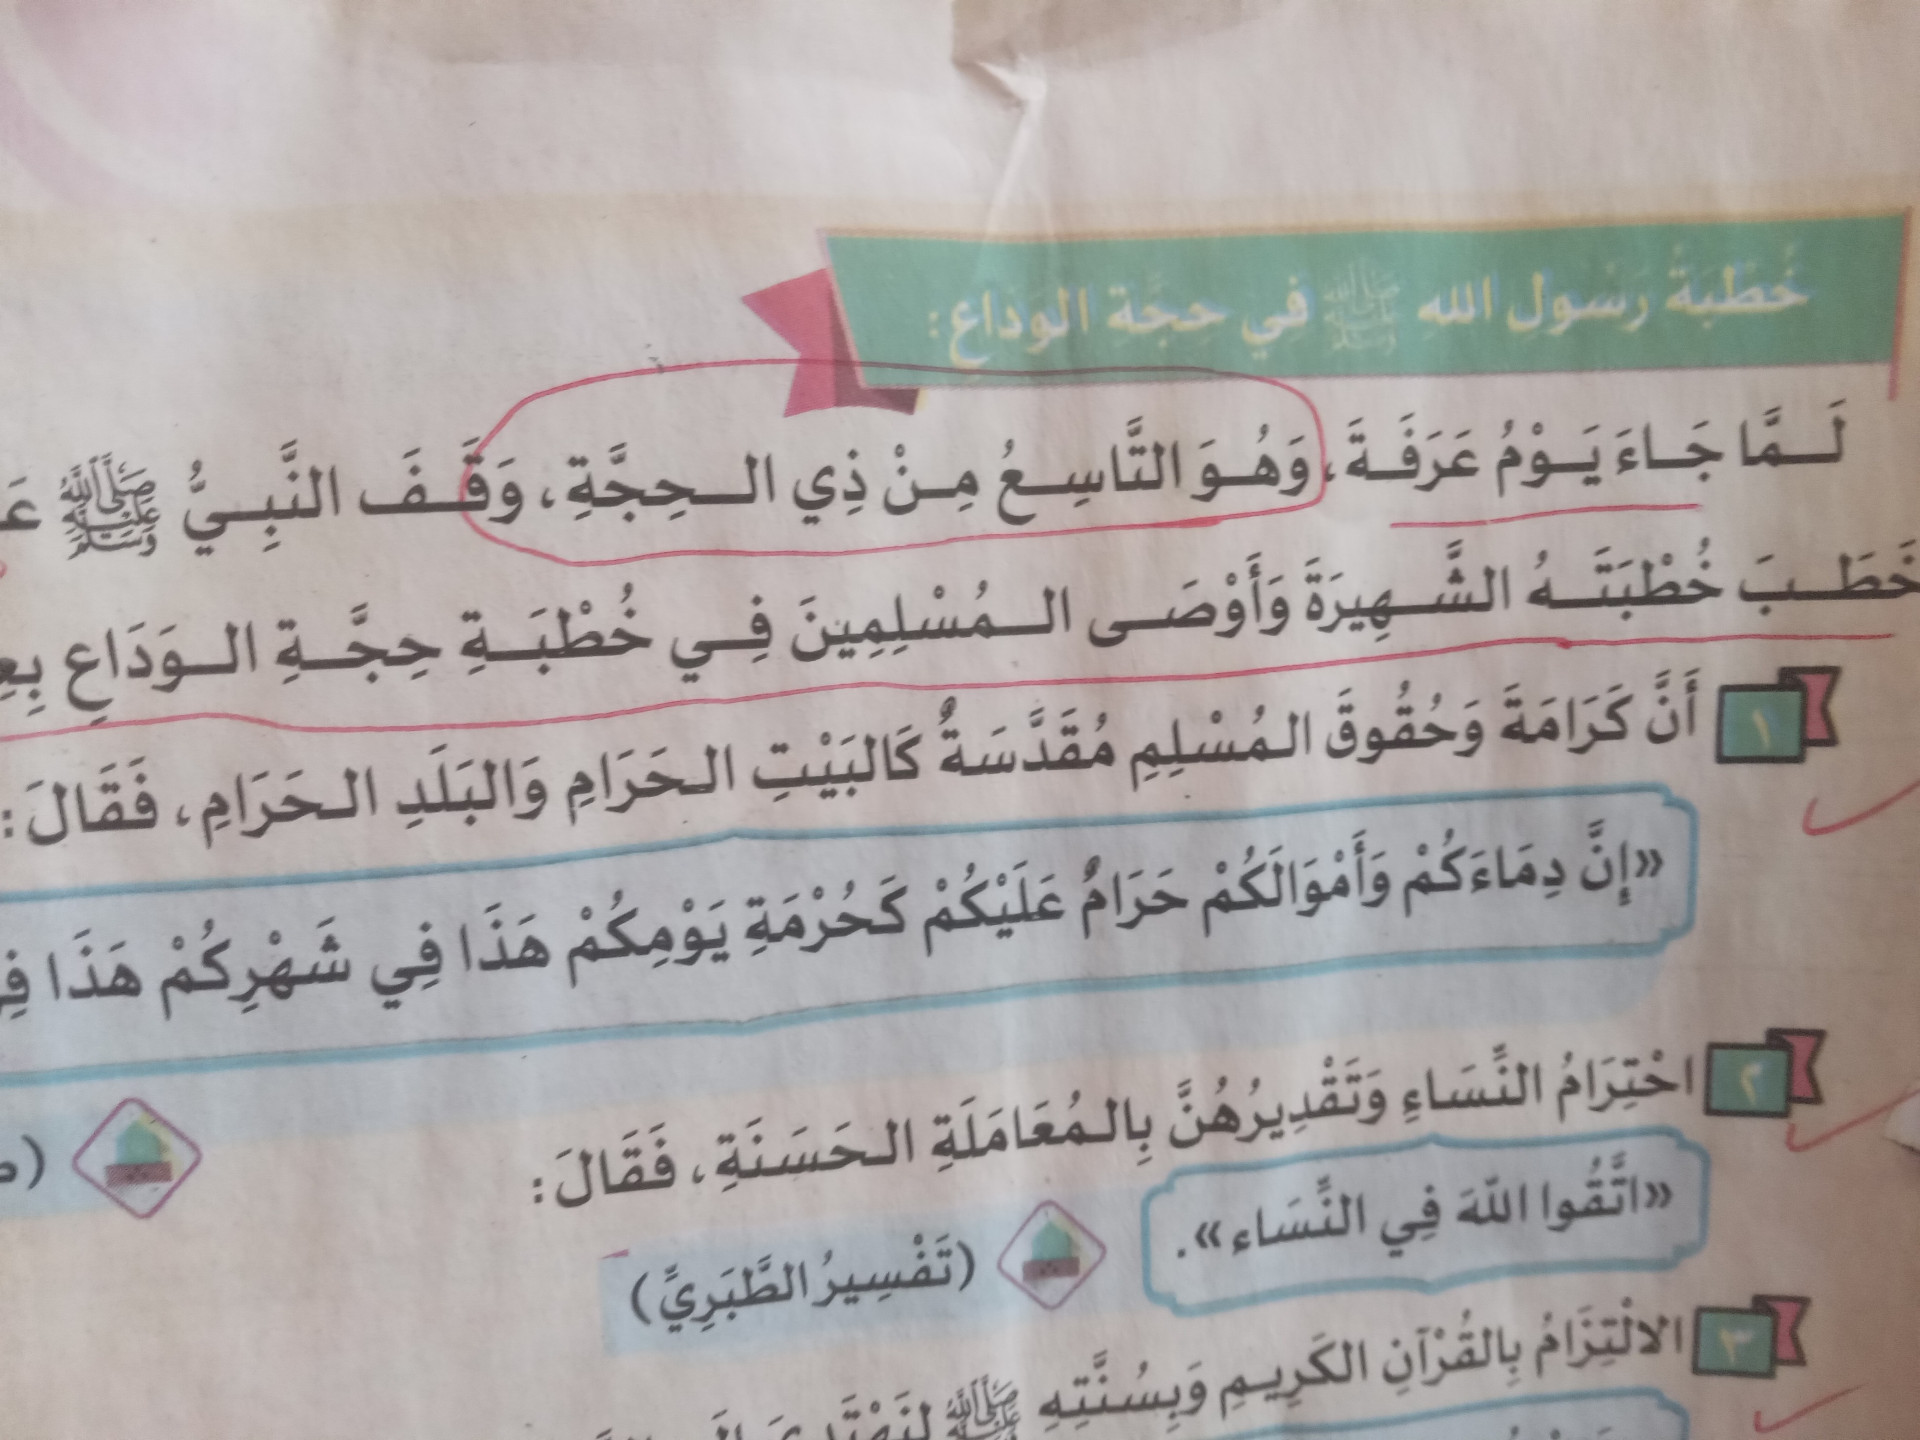 خُطْبَةُ رَسُولِ اللهِ ﷺ فِي حِجَّةِ الوَدَاعِ:
لَـمَّا جَـاءَ يَـوْمُ عَرَفَـةَ، وَهُـوَ التَّاسِـعُ مِـنْ ذِي الـحِجَّةِ، وَقَـفَ النَّبِـيُّ ﷺ
خَطَـبَ خُطْبَتَـهُ الشَّـهِيرَةَ وَأَوْصَـى الـمُسْلِمِينَ فِـي خُطْبَـةِ حِجَّـةِ الـوَدَاعِ
١ أَنَّ كَرَامَةَ وَحُقُوقَ الـمُسْلِمِ مُقَدَّسَةٌ كَالبَيْتِ الـحَرَامِ وَالبَلَدِ الـحَرَامِ، فَقَالَ:
«إِنَّ دِمَاءَكُمْ وَأَمْوَالَكُمْ حَرَامٌ عَلَيْكُمْ كَحُرْمَةِ يَوْمِكُمْ هَذَا فِي شَهْرِكُمْ هَذَا
٢ احْتِرَامُ النِّسَاءِ وَتَقْدِيرُهُنَّ بِالـمُعَامَلَةِ الـحَسَنَةِ، فَقَالَ:
«اتَّقُوا اللَّهَ فِي النِّسَاءِ». (تَفْسِيرُ الطَّبَرِيِّ)
٣ الالْتِزَامُ بِالقُرْآنِ الكَرِيمِ وَبِسُنَّتِهِ ﷺ